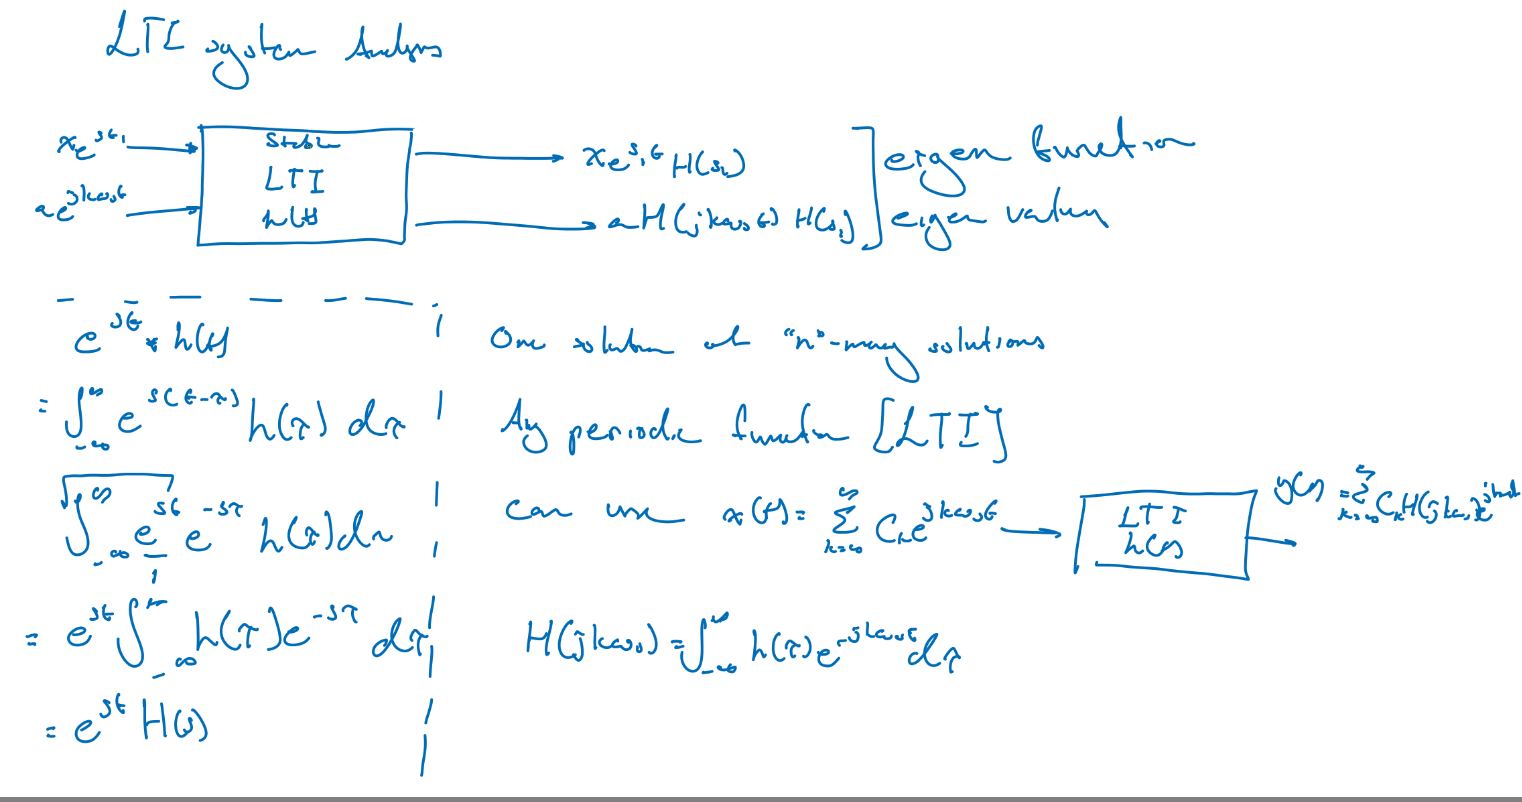 LTI system Analysis
xe^{st_1}
ae^{jkω₀t}
Stable
LTI
h(t)
xe^{s₁t} H(s₁)
aH(jkω₀t) H(s₁)
eigen function
eigen values
e^{st} * h(t)
= ∫_{-∞}^{∞} e^{s(t-τ)} h(τ) dτ
∫_{-∞}^{∞} e^{st} e^{-sτ} h(τ) dτ
= e^{st} ∫_{-∞}^{∞} h(τ) e^{-sτ} dτ
= e^{st} H(s)
One solution "n"-many solutions
Any periodic function [LTI]
can use x(t) = ∑_{k=-∞}^{∞} C_k e^{jkω₀t}
LTI
h(t)
y(t) = ∑_{k=-∞}^{∞} C_k H(jkω₀) e^{jkω₀t}
H(jkω₀) = ∫_{-∞}^{∞} h(τ) e^{-jkω₀t} dτ